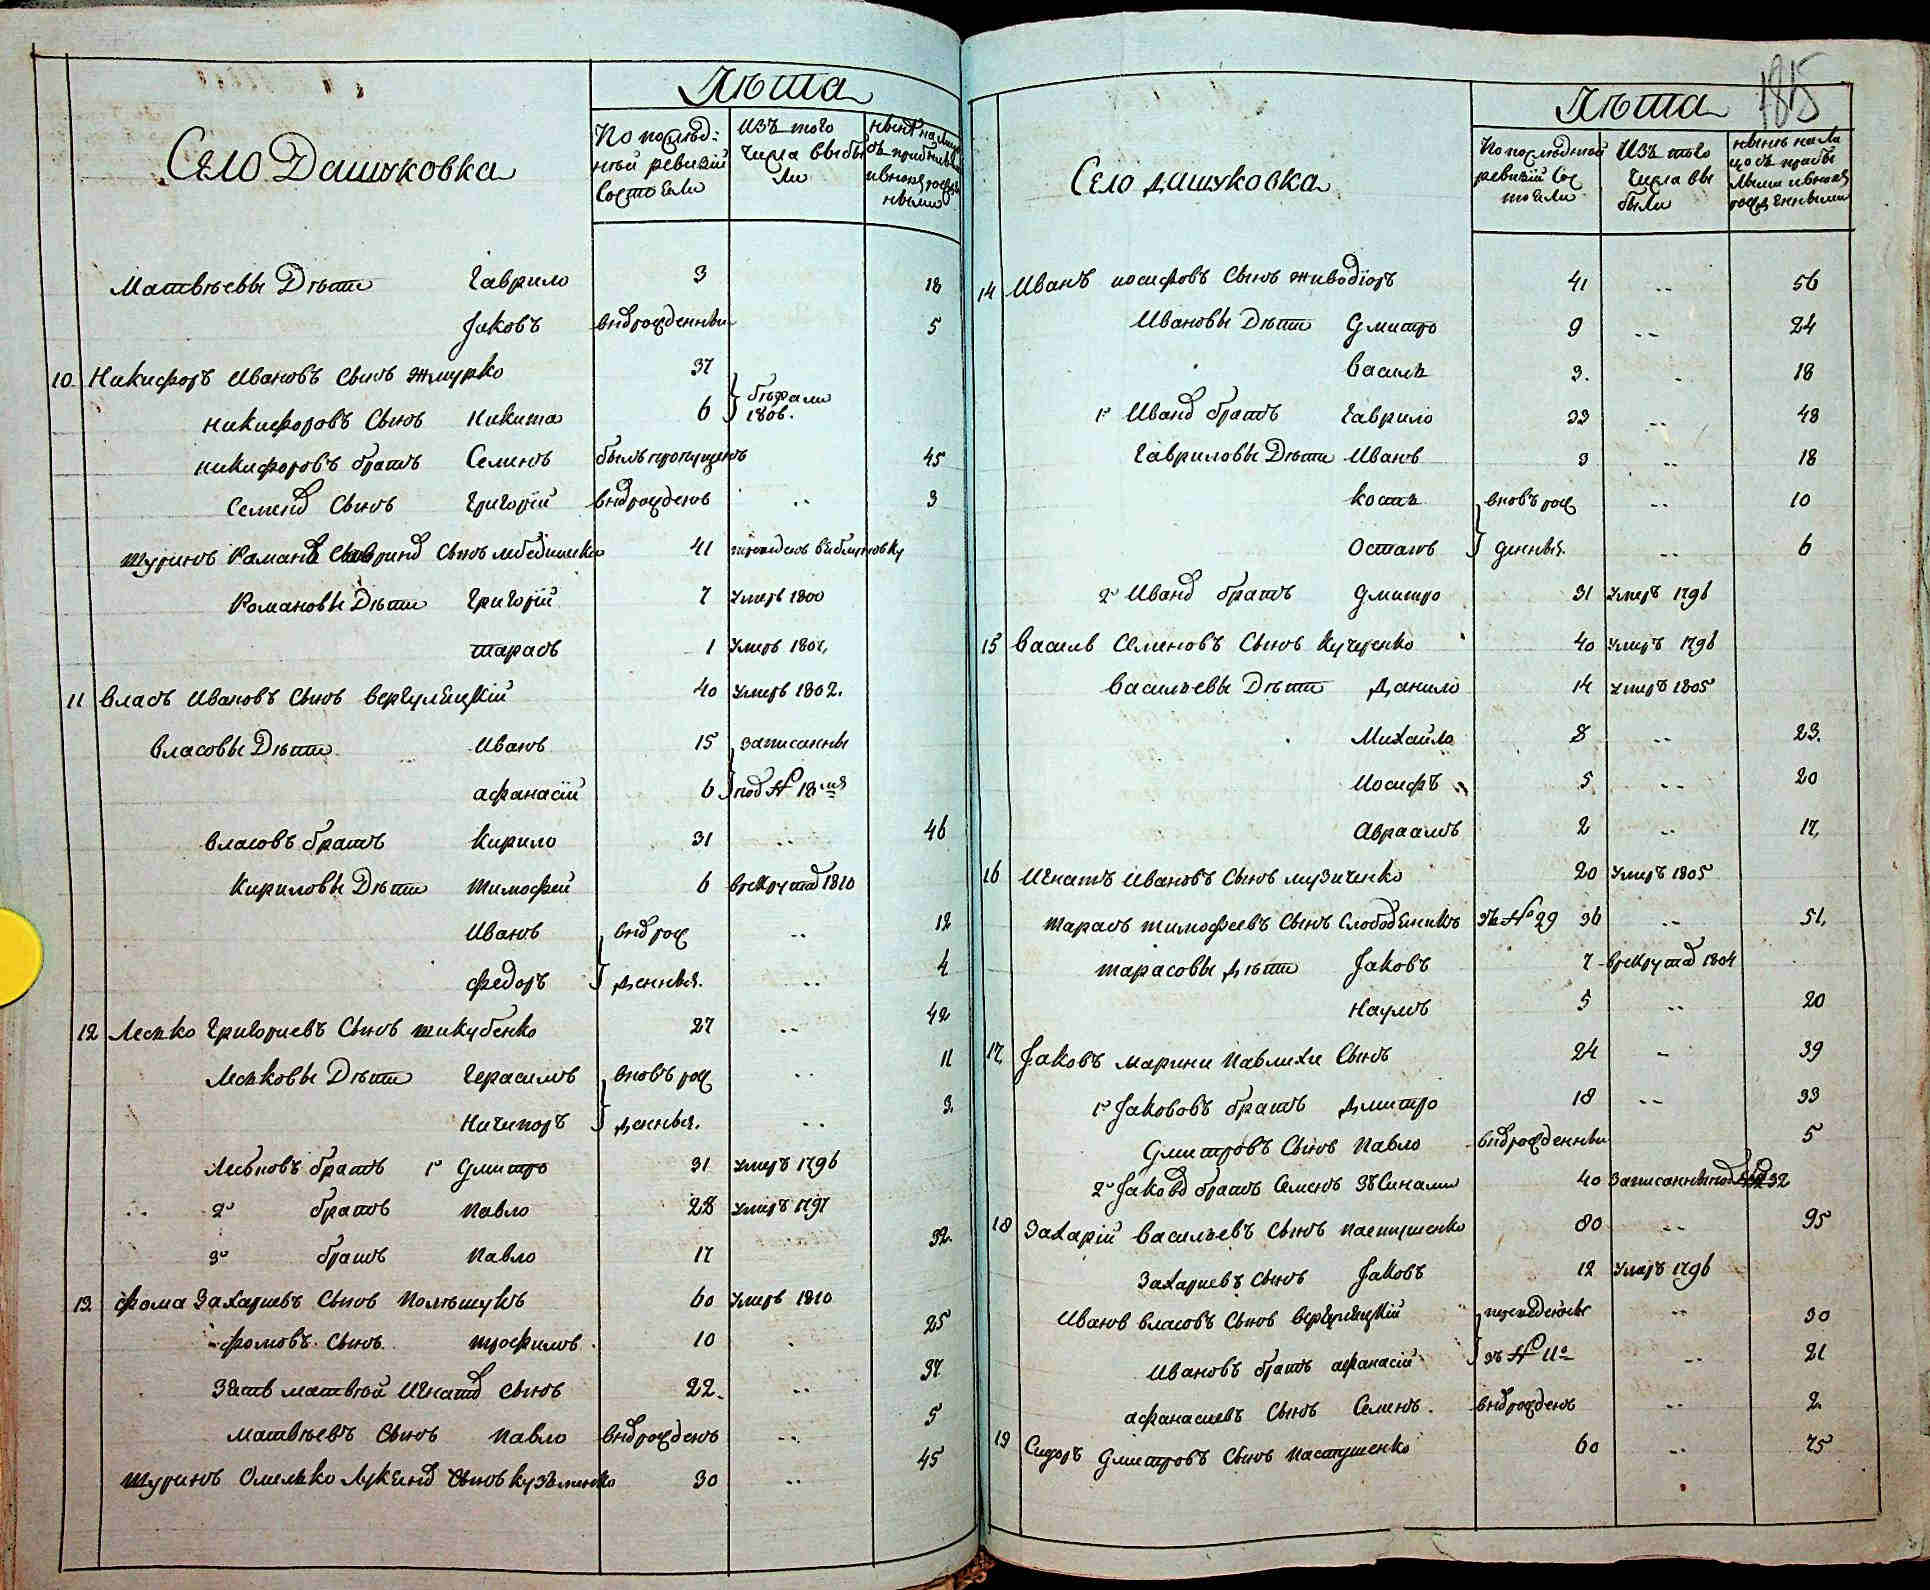 Село Дашуковка
Лѣта
По послѣд:
ней ревизіи
Состояли
Изъ того
Числа выбы
ли
нынѣ на лицо
нными
Матвѣевы Дѣти Гаврило 3 18
Јаковъ внврожденны 5
10 Никифоръ Ивановъ Сынъ жмурко 37
} бѣжали
никифоровъ Сынъ Никита 6 1806.
никифоровъ братъ Семенъ былъ пропущенъ 45
Семена Сынъ Григорій внврожденъ .. 3
Шуринъ Романъ Сынъ 41
Романовы Дѣти Григорій 7 умеръ 1800
Тарасъ 1 умеръ 1801,
11 Власъ Ивановъ Сынъ Вергулецкій 40 умеръ 1802.
Власовы Дѣти Иванъ 15 записанны
афанасій 6 под № 18мъ
Власовъ братъ Кирило 31 .. 46
Кириловы Дѣти Тимофей 6 врекруты 1810
Иванъ внврож .. 12
Федоръ денныя. .. 4
12 Лесько Григориевъ Сынъ шикубенко 27 .. 42
Леськовы Дѣти Герасимъ вновъ рож .. 11
Ничипоръ денныя. .. 3.
Леськовъ братъ 1й Дмитро 31 умеръ 1796
2й братъ Павло 28 умеръ 1797
3й братъ Павло 17 32.
13 Фома Захариевъ Сынъ Полѣшукъ 60 умеръ 1810
Фомовъ Сынъ Трофимъ 10 . 25
Зять матвѣй Игната Сынъ 22. .. 37
Матвѣевъ Сынъ Павло внврожденъ .. 5
Шуринъ Омелько Лукъяна Сынъ кузьменко 30 .. 45
185
Село дашуковка
Лѣта
По послѣдней
ревизіи Сос
тояли
Изъ того
Числа вы
были
нынѣ на ли
цо съ прибы
лыми и вновъ
рожденными
14 Иванъ иосифовъ Сынъ живодіоръ 41 .. 56
Ивановы Дѣти Дмитро 9 .. 24
Василь 3. . 18
1й Ивана братъ Гаврило 33 .. 48
Гавриловы Дѣти Иванъ 3 .. 18
Кость вновъ рож .. 10
Остапъ денныя. .. 6
2й Ивана братъ Дмитро 31 умеръ 1796
15 Василь Семеновъ Сынъ Кучеренко 40 умеръ 1796
Васильевы Дѣти Данило 14 умеръ 1805
Михайло 8 .. 23.
Иосифъ 5 .. 20
Авраамъ 2 .. 17,
16 Игнатъ Ивановъ Сынъ музиченко 20 умеръ 1805
Тарасъ Тимофеевъ Сынъ Слободеникъ зъ № 29 36 .. 51,
Тарасовы дѣти Јаковъ 7 врекруты 1804
Наумъ 5 .. 20
17, Јаковъ Марини Павлихи Сынъ 24 .. 39
1й Јакововъ братъ Дмитро 18 .. 33
Дмитровъ Сынъ Павло внврожденны 5
2й Јакова братъ Семенъ зъ Синами 40 записанны под № 32
18 Захарій Васильевъ Сынъ Пастушенко 80 .. 95
Захариевъ Сынъ Јаковъ 12 умеръ 1796
Иванъ Власовъ Сынъ Вергулецкій переведенны .. 30
Ивановъ братъ афанасій зъ № 11о .. 21
афанасиевъ Сынъ Семенъ. внврожденъ .. 2.
19 Сидоръ Дмитровъ Сынъ Пастушенко 60 .. 75